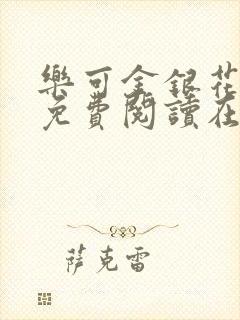 樂可金銀花
免費閱讀在
萨克雷